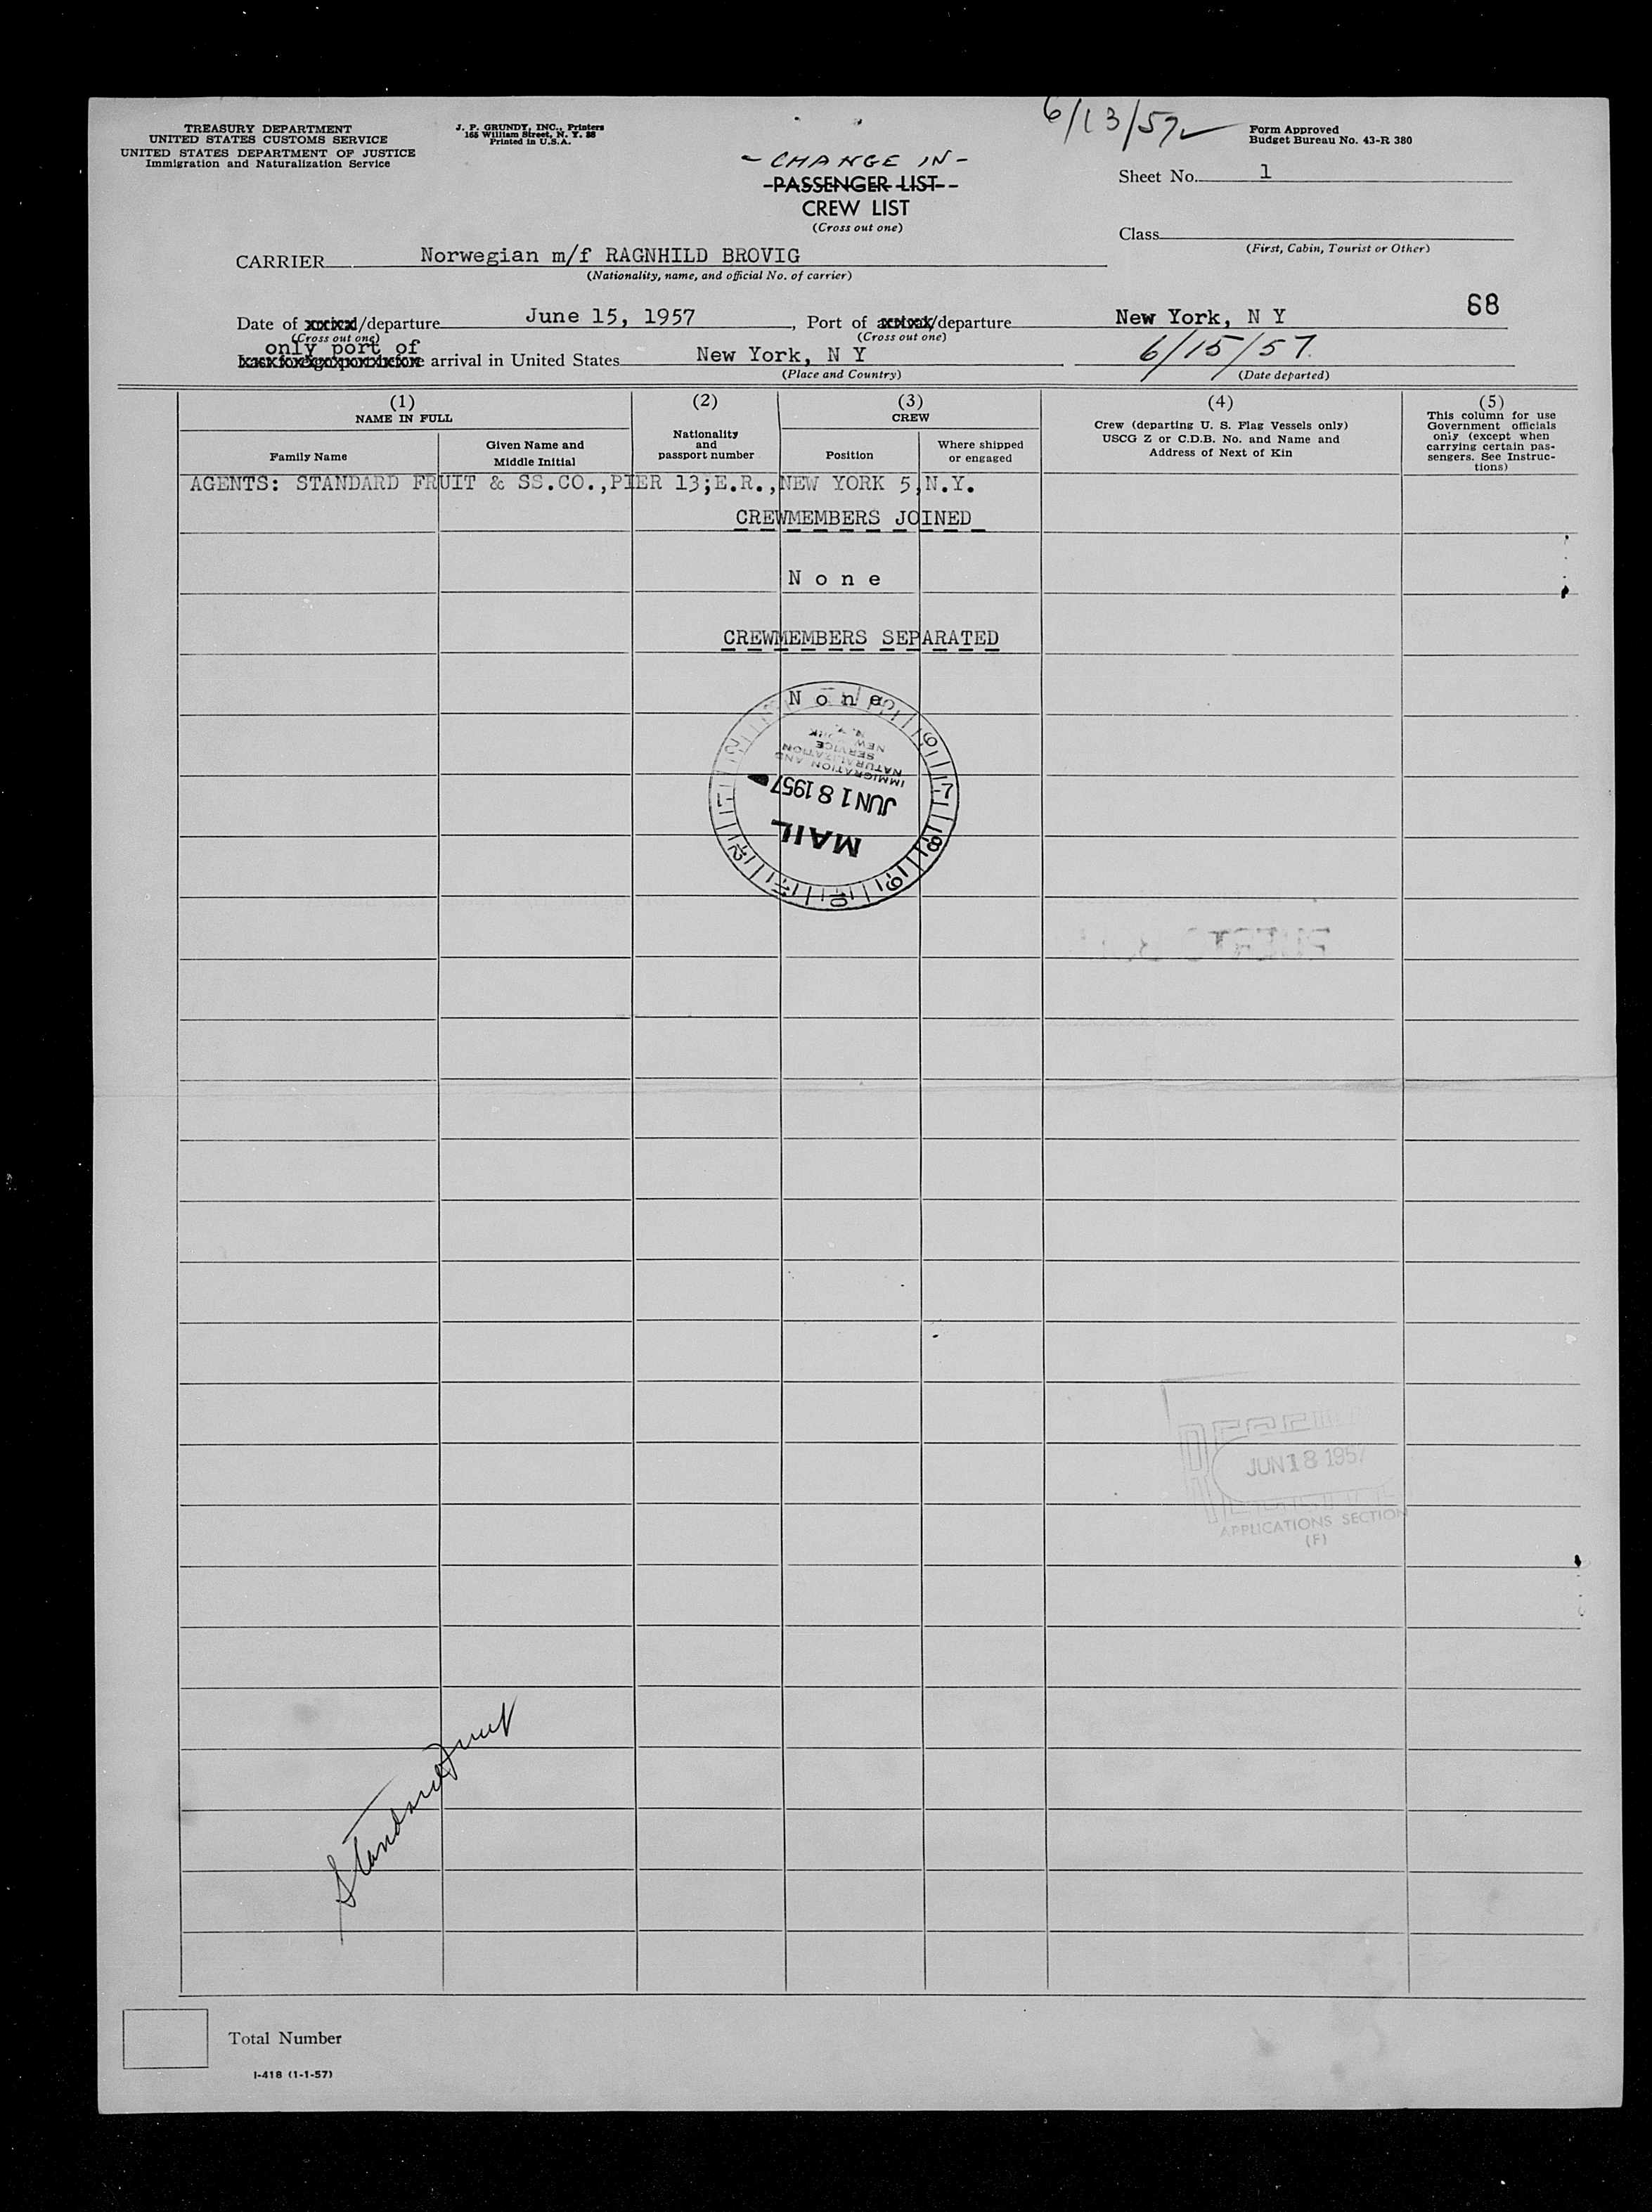 TREASURY DEPARTMENT
UNITED STATES CUSTOMS SERVICE
UNITED STATES DEPARTMENT OF JUSTICE
Immigration and Naturalization Service
J. P. GRUNDY, INC., Printers
165 William Street, N. Y. 38
Printed in U.S.A.
6/13/57
Form Approved
Budget Bureau No. 43-R 380
- CHANGE IN -
-PASSENGER LIST-
CREW LIST
(Cross out one)
Sheet No. 1
Class
(First, Cabin, Tourist or Other)
CARRIER Norwegian m/f RAGNHILD BROVIG
(Nationality, name, and official No. of carrier)
68
Date of /departure June 15, 1957, Port of /departure New York, N Y
(Cross out one) (Cross out one)
only port of
arrival in United States New York, N Y 6/15/57.
(Place and Country) (Date departed)
(1)
NAME IN FULL
Family Name
Given Name and
Middle Initial
(2)
Nationality
and
passport number
(3)
CREW
Position
Where shipped
or engaged
(4)
Crew (departing U. S. Flag Vessels only)
USCG Z or C.D.B. No. and Name and
Address of Next of Kin
(5)
This column for use
Government officials
only (except when
carrying certain pas-
sengers. See Instruc-
tions)
AGENTS: STANDARD FRUIT & SS.CO.,PIER 13;E.R.,NEW YORK 5,N.Y.
CREWMEMBERS JOINED
N o n e
CREWMEMBERS SEPARATED
N o n e
MAIL
JUN 18 1957
IMMIGRATION AND
NATURALIZATION
SERVICE
NEW YORK
N. Y.
JUN 18 1957
APPLICATIONS SECTION
(F)
Standard Fruit
Total Number
I-418 (1-1-57)